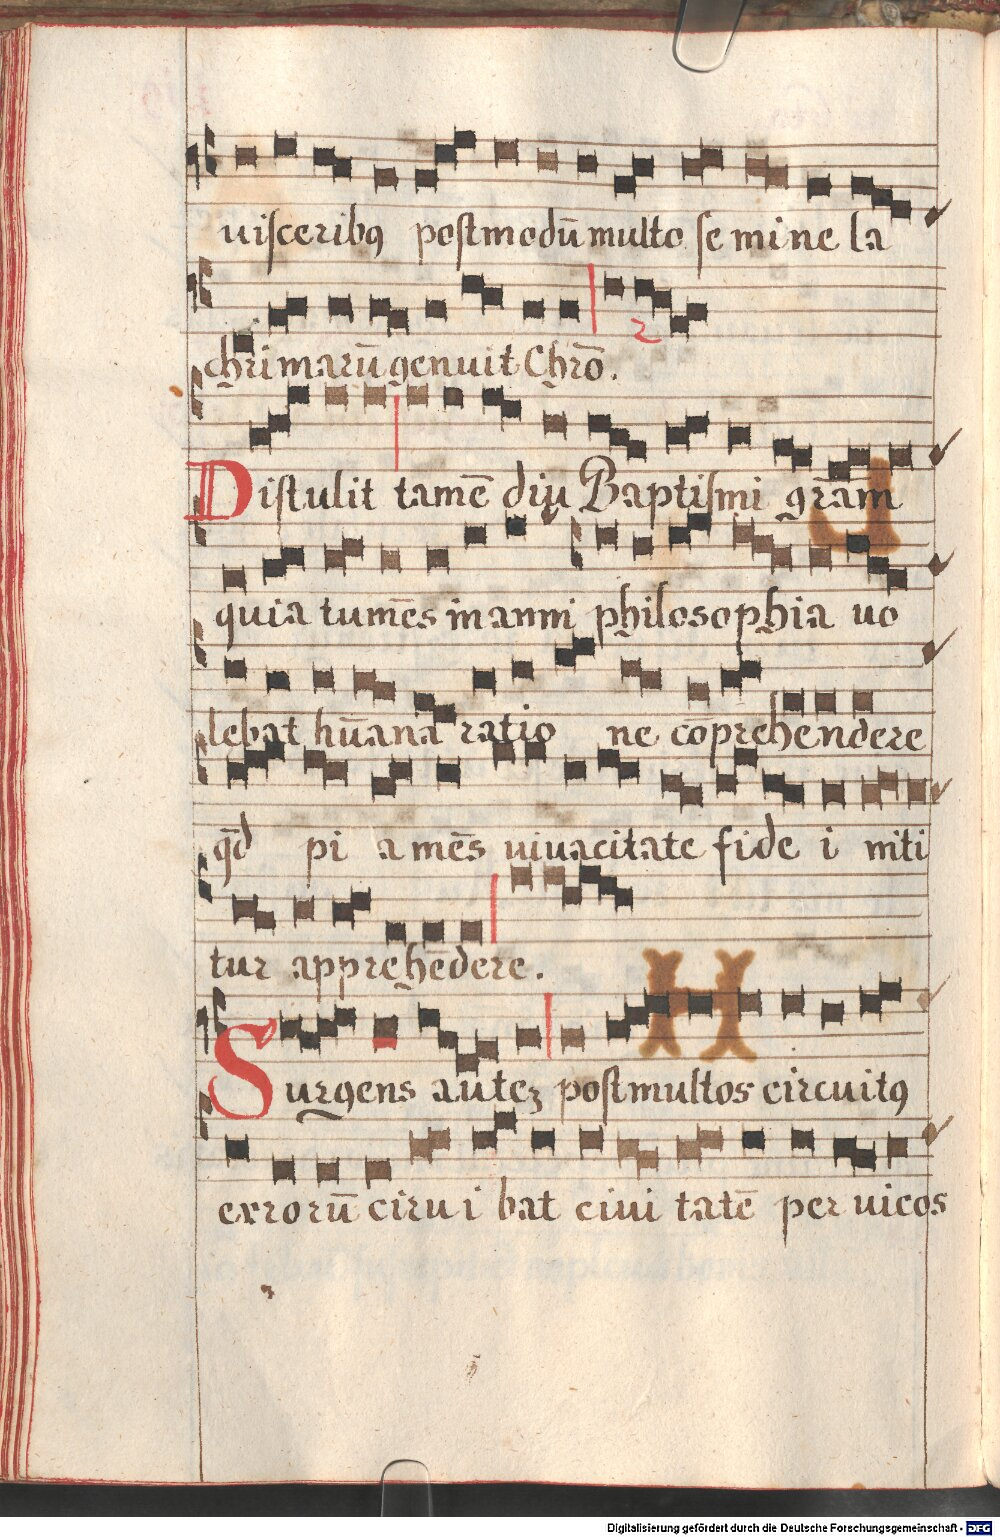 uisceribꝯ postmodū multo se mi ne la
chrimarū genuit Chrō.
2
Distulit tamē diu Baptismi grām
quia tumēs inanni philosophia uo
lebat hūana ratio ne cōprehendere
qd̄ pi a mēs uiuacitate fide i niti
tur apprehēdere.
Surgens autez post multos circuitꝯ
errorū ciru i bat ciui tatē per uicos
Digitalisierung gefördert durch die Deutsche Forschungsgemeinschaft - DFG